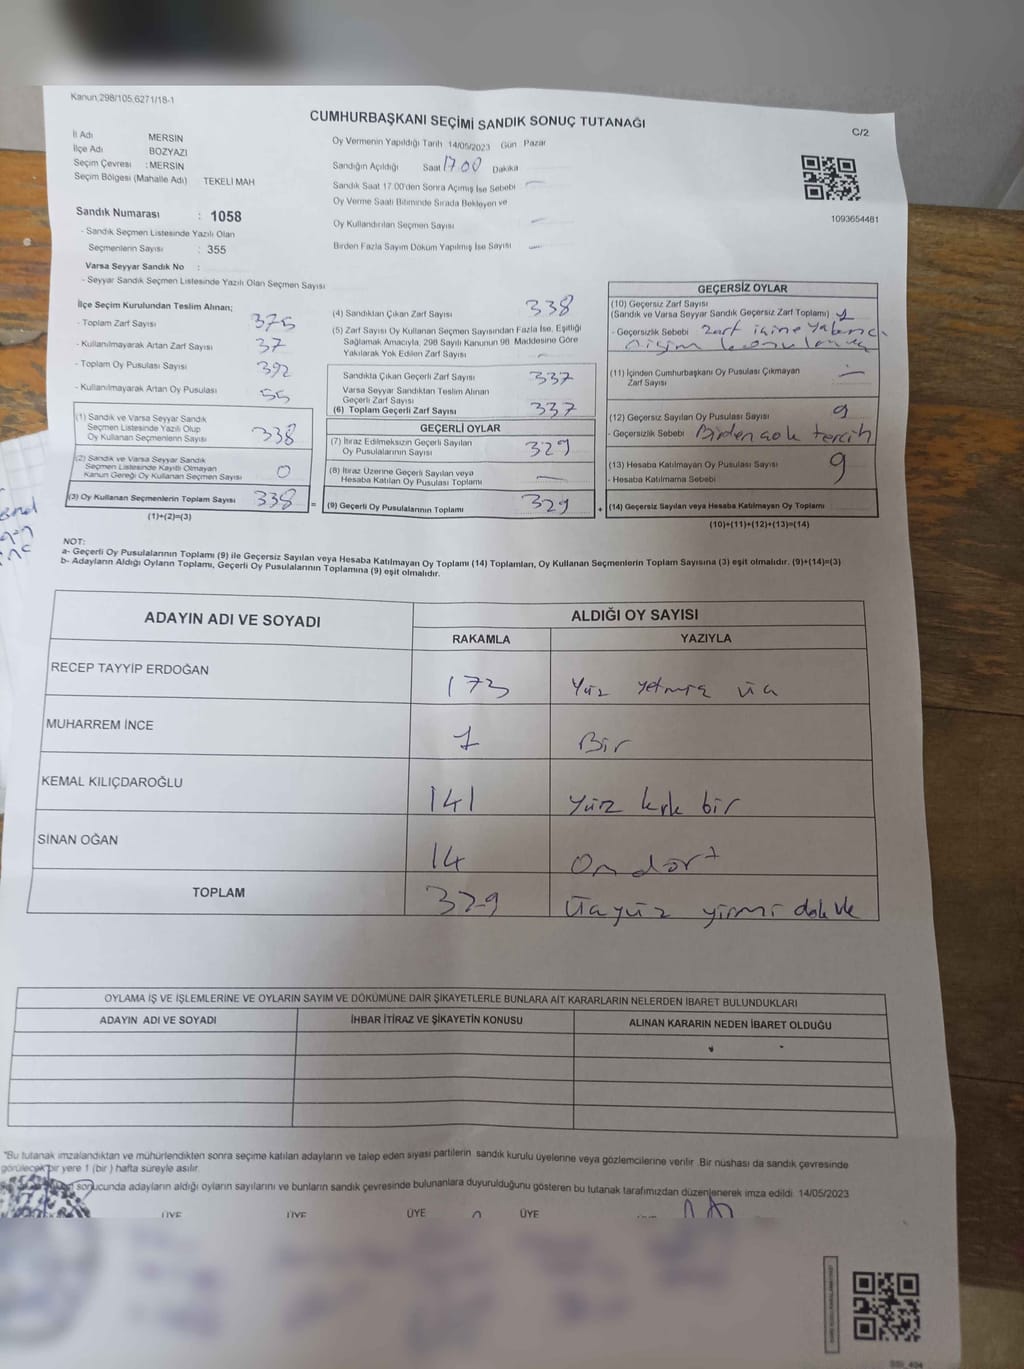 Kanun:298/105,6271/18-1
CUMHURBAŞKANI SEÇİMİ SANDIK SONUÇ TUTANAĞI
C/2
İl Adı MERSİN
İlçe Adı BOZYAZI
Seçim Çevresi : MERSİN
Seçim Bölgesi (Mahalle Adı) TEKELİ MAH
Sandık Numarası : 1058
- Sandık Seçmen Listesinde Yazılı Olan
Seçmenlerin Sayısı : 355
Varsa Seyyar Sandık No :
- Seyyar Sandık Seçmen Listesinde Yazılı Olan Seçmen Sayısı
Oy Vermenin Yapıldığı Tarih 14/05/2023 Gün Pazar
Sandığın Açıldığı Saat 17.00 Dakika
Sandık Saat 17.00'den Sonra Açılmış İse Sebebi —
Oy Verme Saati Bitiminde Sırada Bekleyen ve
Oy Kullandırılan Seçmen Sayısı —
Birden Fazla Sayım Döküm Yapılmış İse Sayısı —
1093654481
İlçe Seçim Kurulundan Teslim Alınan;
- Toplam Zarf Sayısı 375
- Kullanılmayarak Artan Zarf Sayısı 37
- Toplam Oy Pusulası Sayısı 392
- Kullanılmayarak Artan Oy Pusulası 55
(1) Sandık ve Varsa Seyyar Sandık
Seçmen Listesinde Yazılı Olup
Oy Kullanan Seçmenlerin Sayısı 338
(2) Sandık ve Varsa Seyyar Sandık
Seçmen Listesinde Kayıtlı Olmayan
Kanun Gereği Oy Kullanan Seçmen Sayısı 0
(3) Oy Kullanan Seçmenlerin Toplam Sayısı 338 =
(1)+(2)=(3)
(4) Sandıktan Çıkan Zarf Sayısı 338
(5) Zarf Sayısı Oy Kullanan Seçmen Sayısından Fazla İse, Eşitliği
Sağlamak Amacıyla, 298 Sayılı Kanunun 98. Maddesine Göre
Yakılarak Yok Edilen Zarf Sayısı —
Sandıkta Çıkan Geçerli Zarf Sayısı 337
Varsa Seyyar Sandıktan Teslim Alınan
Geçerli Zarf Sayısı
(6) Toplam Geçerli Zarf Sayısı 337
GEÇERLİ OYLAR
(7) İtiraz Edilmeksizin Geçerli Sayılan
Oy Pusulalarının Sayısı 329
(8) İtiraz Üzerine Geçerli Sayılan veya
Hesaba Katılan Oy Pusulası Toplamı —
(9) Geçerli Oy Pusulalarının Toplamı 329 +
GEÇERSİZ OYLAR
(10) Geçersiz Zarf Sayısı
(Sandık ve Varsa Seyyar Sandık Geçersiz Zarf Toplamı) 1
- Geçersizlik Sebebi zarf içine yabancı
(11) İçinden Cumhurbaşkanı Oy Pusulası Çıkmayan
Zarf Sayısı —
(12) Geçersiz Sayılan Oy Pusulası Sayısı 9
- Geçersizlik Sebebi Birden çok tercih
(13) Hesaba Katılmayan Oy Pusulası Sayısı 9
- Hesaba Katılmama Sebebi
(14) Geçersiz Sayılan veya Hesaba Katılmayan Oy Toplamı
(10)+(11)+(12)+(13)=(14)
NOT:
a- Geçerli Oy Pusulalarının Toplamı (9) ile Geçersiz Sayılan veya Hesaba Katılmayan Oy Toplamı (14) Toplamları, Oy Kullanan Seçmenlerin Toplam Sayısına (3) eşit olmalıdır. (9)+(14)=(3)
b- Adayların Aldığı Oyların Toplamı, Geçerli Oy Pusulalarının Toplamına (9) eşit olmalıdır.
ADAYIN ADI VE SOYADI ALDIĞI OY SAYISI
RAKAMLA YAZIYLA
RECEP TAYYİP ERDOĞAN 173 Yüz yetmiş üç
MUHARREM İNCE 1 Bir
KEMAL KILIÇDAROĞLU 141 Yüz kırk bir
SİNAN OĞAN 14 On dört
TOPLAM 329 Üçyüz yirmi dokuz
OYLAMA İŞ VE İŞLEMLERİNE VE OYLARIN SAYIM VE DÖKÜMÜNE DAİR ŞİKAYETLERLE BUNLARA AİT KARARLARIN NELERDEN İBARET BULUNDUKLARI
ADAYIN ADI VE SOYADI İHBAR İTİRAZ VE ŞİKAYETİN KONUSU ALINAN KARARIN NEDEN İBARET OLDUĞU
*Bu tutanak imzalandıktan ve mühürlendikten sonra seçime katılan adayların ve talep eden siyasi partilerin sandık kurulu üyelerine veya gözlemcilerine verilir. Bir nüshası da sandık çevresinde
görülecek bir yere 1 (bir) hafta süreyle asılır.
sonucunda adayların aldığı oyların sayılarını ve bunların sandık çevresinde bulunanlara duyurulduğunu gösteren bu tutanak tarafımızdan düzenlenerek imza edildi. 14/05/2023
ÜYE ÜYE ÜYE ÜYE